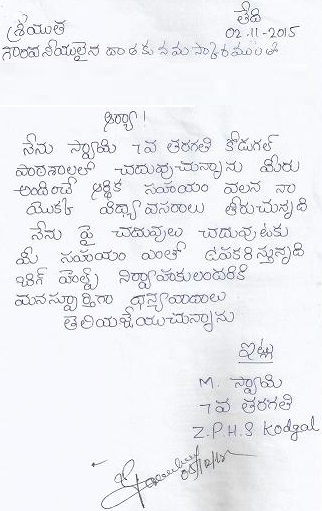 తేది
శ్రీయుత 02.11-2015
గౌరవనీయులైన దాతకు నమస్కారములతో
అయ్యా!
నేను స్వామి 7వ తరగతి కోడుగల్
పాఠశాలలో చదువుచున్నాను మీరు
అందించే ఆర్థిక సహాయం వలన నా
యొక్క విద్యావసరాలు తీరుచున్నది
నేను పై చదువులు చదువుటకు
మీ సహాయం ఎంతో ఉపకరిస్తున్నది
బిగ్ హెల్ప్ నిర్వాహకులందరికి
మనస్ఫూర్తిగా ధన్యవాదాలు
తెలియజేయుచున్నాను
ఇట్లు
M. స్వామి
7వ తరగతి
Z.P.H.S Kodgal